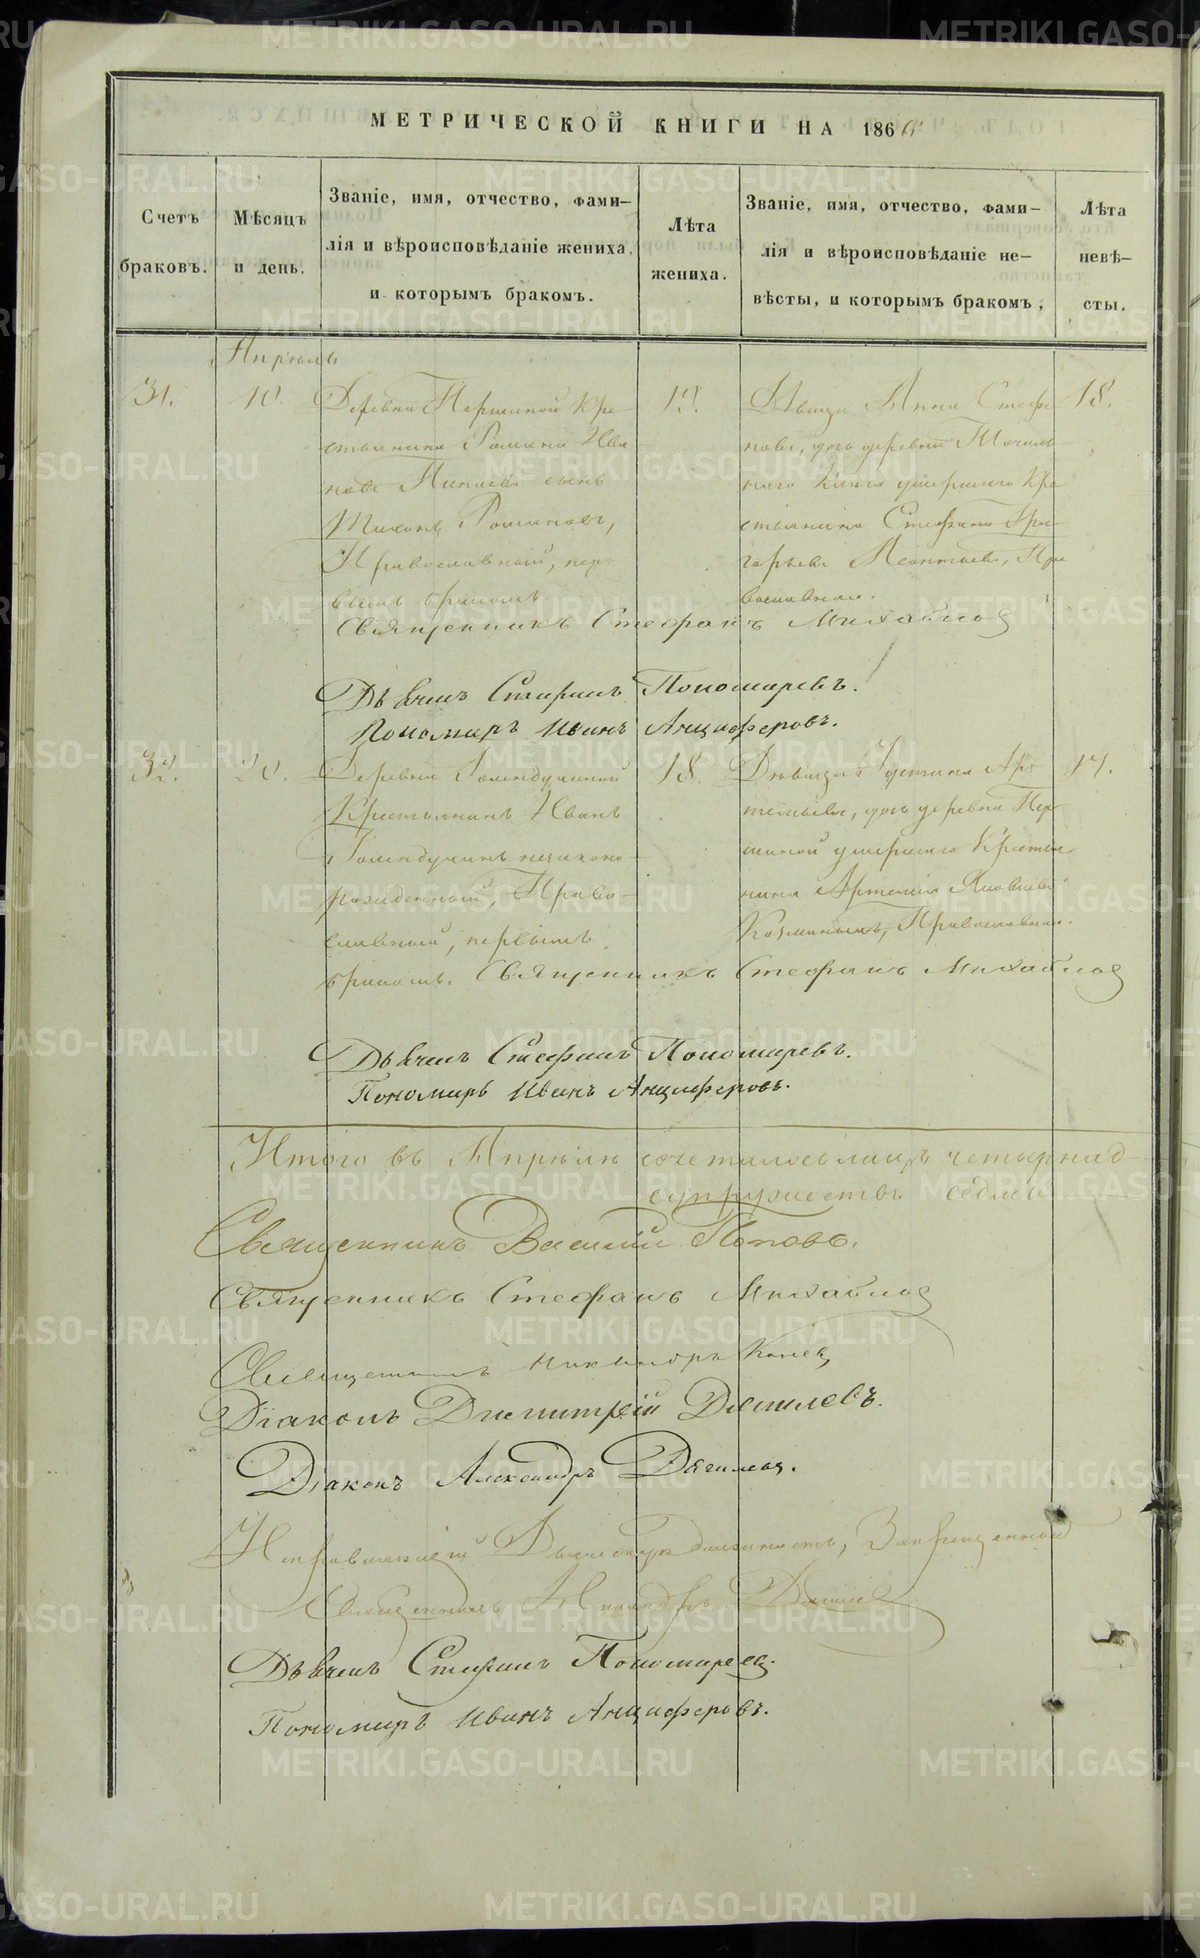 МЕТРИЧЕСКОЙ КНИГИ НА 1866
Счетъ браковъ.
Мѣсяцъ и день.
Званіе, имя, отчество, фами-
лія и вѣроисповѣданіе жениха,
и которымъ бракомъ.
Лѣта жениха.
Званіе, имя, отчество, фами-
лія и вѣроисповѣданіе не-
вѣсты, и которымъ бракомъ,
Лѣта невѣ-
сты.
Апрѣль
31.
10.
Деревни Першиной Кре-
стьянина Романа Ива
нова сынъ
Тихонъ Романовъ,
Православный, пер-
вымъ бракомъ.
19.
Дѣвица Анна Стефа
нова, дочь деревни
Ключа умершаго Кре
стьянина Стефана Гри-
горьева Леонтьева, Пра
вославная.
18.
Священникъ Стефанъ Михайлов
Дьячекъ Стефанъ Пономаревъ.
Пономарь Иванъ Анциферовъ.
32.
20.
Деревни Голендухиной
Крестьянинъ Иванъ
Голендухинъ незаконо-
рожденный, Право-
славный, первымъ
бракомъ.
18.
Дѣвица Устинья Ар-
темьева, дочь деревни Пер-
шиной умершаго Крестья
нина Артемія Яковлева
Православная.
17.
Священникъ Стефанъ Михайлов
Дьячекъ Стефанъ Пономаревъ.
Пономарь Иванъ Анциферовъ.
Итого въ Апрѣлѣ сочеталось лицъ четырнад
супружествъ седмь
Священникъ Василий Поповъ.
Священникъ Стефанъ Михайлов
Священникъ Никаноръ
Діаконъ Димитрій Дягилевъ.
Діаконъ Александръ Дягилев.
Исправляющій Дьяческую должность, Запрещенный
Священникъ
Дьячекъ Стефанъ Пономаревъ.
Пономарь Иванъ Анциферовъ.
METRIKI.GASO-URAL.RU